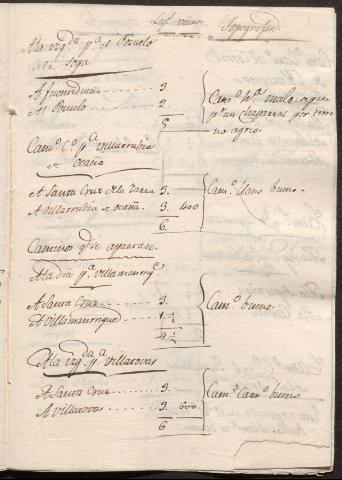 Leg.s vecinos Topografia
A la izq.da p.a el Pozuelo
de la Soga
A fuentidueña 3.
Al Pozuelo 2.
5
Cam.o h.a malo
p.r un chaparral por terre
no agrio.
Cam.o C.o p.a Villarrubia
de Ocaña
A Santa Cruz de la Zarza 3.
A Villarrubia de ocaña. 3. 400
6.
Cam.o llano bueno.
Caminos q.e se apartan.
A la dra p.a Villamanrriq.e
A Santa Cruz 3.
A Villamanrrique 1 ½
4 ½
Cam.o bueno.
A la izq.da p.a Villatovas
A Santa Cruz 3.
A Villatovas 3. 600.
6
Cam.o Carr.o bueno